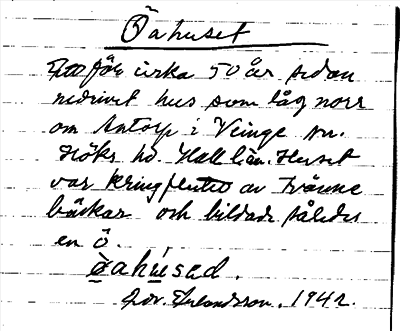 Öahuset
Ett för cirka 50 år sedan
nedrivet hus som låg norr
om Antorp i Veinge sn.
Höks hd. Hall. län. Huset
var kringflutet av tvänne
bäckar och bildade således
en ö.
öahusad.
Erlandsson. 1942.